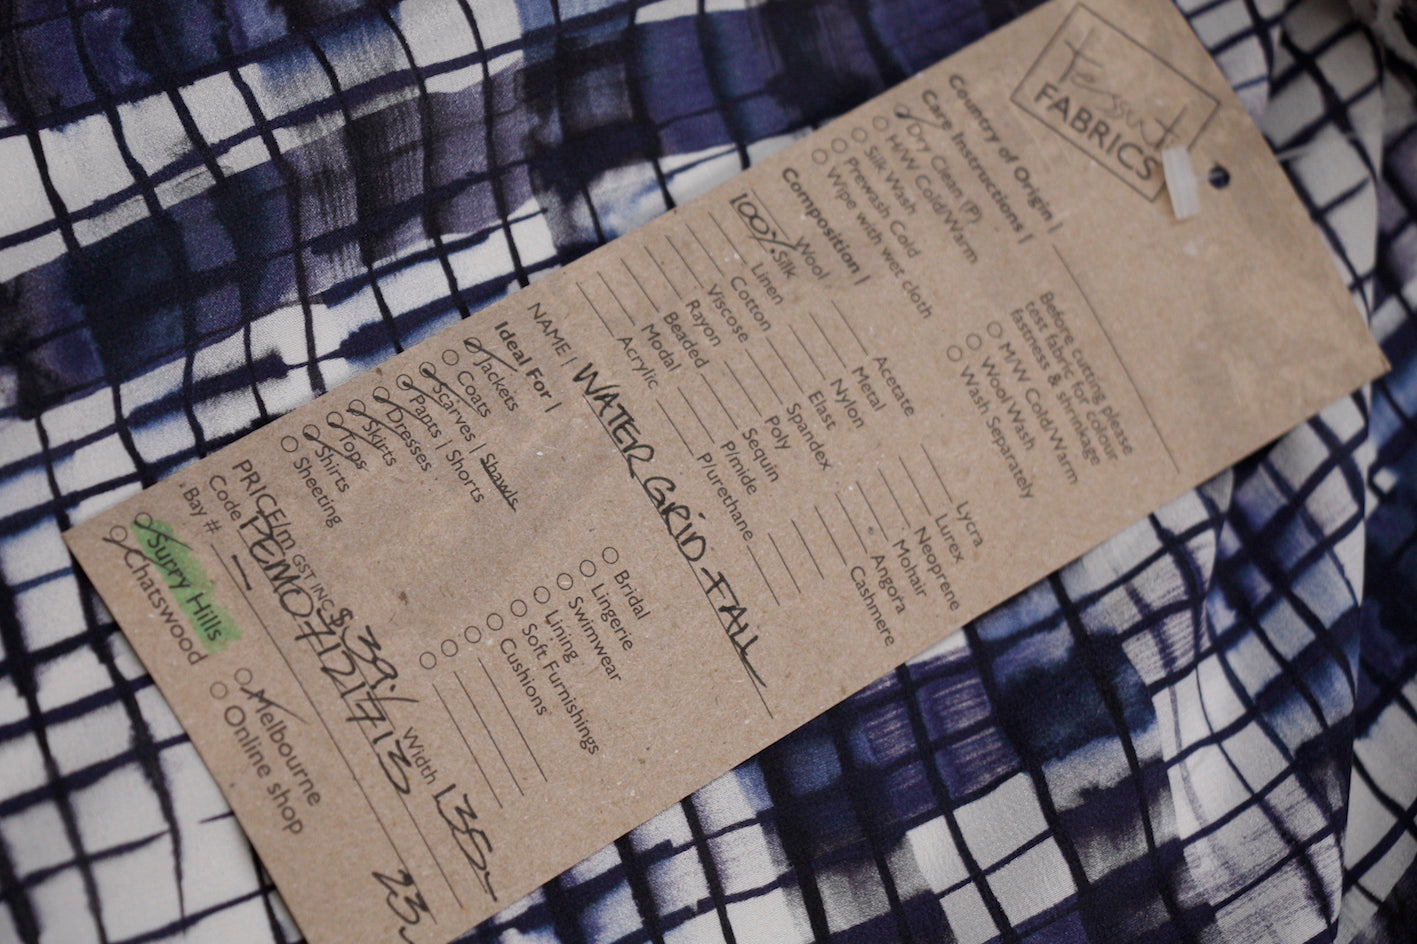 Tessuti
FABRICS
Country of Origin |
Care Instructions |
Dry Clean (P)
H/W Cold/Warm
Silk Wash
Prewash Cold
Wipe with wet cloth
Before cutting please
test fabric for colour
fastness & shrinkage
M/W Cold/Warm
Wool Wash
Wash Separately
Composition |
Wool
100% Silk
Linen
Cotton
Viscose
Rayon
Beaded
Modal
Acrylic
Acetate
Metal
Nylon
Elast
Spandex
Poly
Sequin
P/mide
P/urethane
Lycra
Lurex
Neoprene
Mohair
Angora
Cashmere
NAME | WATER GRID-FALL
Ideal For |
Jackets
Coats
Scarves | Shawls
Pants | Shorts
Dresses
Skirts
Tops
Shirts
Sheeting
Bridal
Lingerie
Swimwear
Lining
Soft Furnishings
Cushions
PRICE/m GST INC $ 39./ Width 135
Code PEMO7121713
Bay # — 23
Surry Hills
Chatswood
Melbourne
Online shop